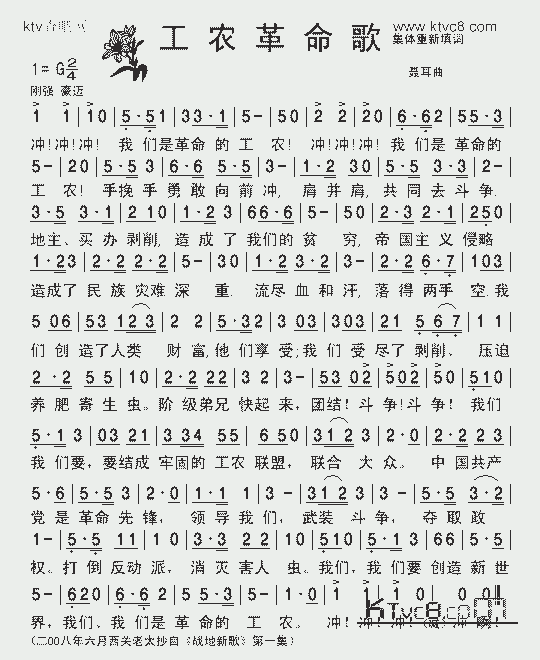 ktv 合唱网 www.ktvc8.com
工农革命歌
集体重新填词
1=G 2/4
聂耳曲
刚强 豪迈
1 1 | 1 0 | 5·51 | 33·1 | 5- | 50 | 2 2 | 20 | 6·62 | 55·3 |
冲!冲!冲! 我们是革命的工农! 冲!冲!冲! 我们是革命的
5- | 20 | 5·5 3 | 6·6 5·5 | 3- | 1·2 30 | 5·5 3·3 | 2- |
工农! 手挽手勇敢向前冲, 肩并肩, 共同去斗争.
3·5 3·1 | 2 10 | 1·2 3 | 66·6 | 5- | 50 | 2·3 2·1 | 250 |
地主、买办剥削, 造成了我们的贫穷, 帝国主义侵略
1·23 | 2·2 2·2 | 5- | 30 | 1·2 3·2 | 3- | 2·2 6·7 | 103 |
造成了民族灾难深重. 流尽血和汗, 落得两手空.我
5 06 | 53 123 | 2 2 | 5·32 | 3 03 | 303 | 21 | 5 67 | 1 1 |
们创造了人类财富,他们享受;我们受尽了剥削、压迫
2·2 5 5 | 10 | 2·2 22 | 3 2 | 53 02 | 502 | 50 | 510 |
养肥寄生虫。阶级弟兄快起来, 团结!斗争!斗争! 我们
5·1 3 | 03 21 | 3 34 55 | 6 50 | 312 3 | 2·0 | 2·2 23 |
我们要, 要结成牢固的工农联盟, 联合大众。 中国共产
5·6 | 5·5 3 | 2·0 | 1·1 1 | 3- | 312 3 | 3- | 5·5 | 3·2 |
党是革命先锋, 领导我们, 武装斗争, 夺取政
1- | 5·5 | 11 | 1 0 | 3·3 | 2 2 | 10 | 5·5 1 | 3·3 66 | 5·5 |
权。打倒反动派, 消灭害人虫。我们, 我们要创造新世
5- | 620 | 6·6 2 | 5·5 | 3 | 5- | 10 | 1 1 | 10 0 | 0 0 |
界, 我们、我们是革命的工农。 冲! 冲! 冲! 冲! 冲啊!
KTvc8.com
(二00八年六月西关老太抄自《战地新歌》第一集)